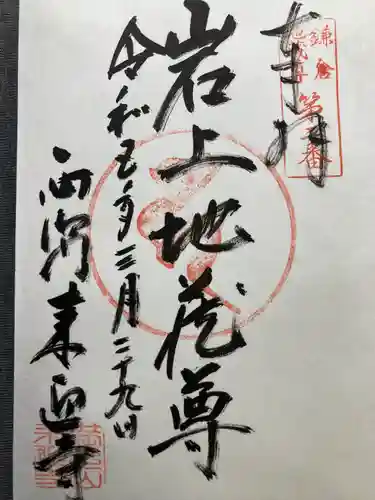 奉拝
鎌倉
二十四
第五番
岩上地蔵尊
令和五年三月二十九日
西御門来迎寺